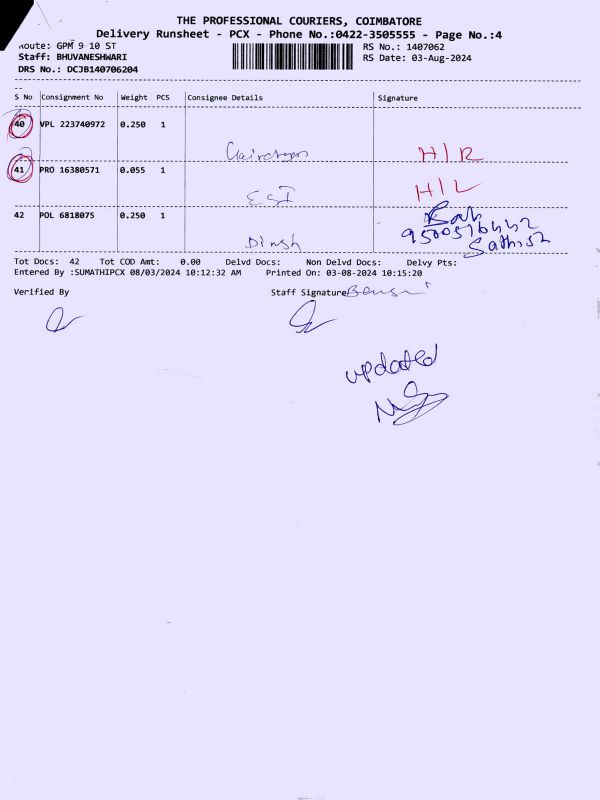 THE PROFESSIONAL COURIERS, COIMBATORE
Delivery Runsheet - PCX - Phone No.:0422-3505555 - Page No.:4
Route: GPM 9 10 ST
RS No.: 1407062
Staff: BHUVANESHWARI
RS Date: 03-Aug-2024
DRS No.: DCJB140706204
S No Consignment No Weight PCS Consignee Details Signature
40 VPL 223740972 0.250 1
H/R
41 PRO 16380571 0.055 1
ESI H/L
42 POL 6818075 0.250 1
Dinsh
Sathish
Tot Docs: 42 Tot COD Amt: 0.00 Delvd Docs: Non Delvd Docs: Delvy Pts:
Entered By :SUMATHIPCX 08/03/2024 10:12:32 AM Printed On: 03-08-2024 10:15:20
Verified By Staff Signature
updated